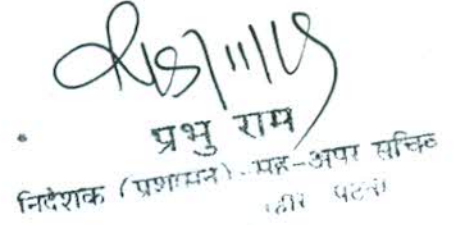 प्रभु राम
निदेशक (प्रशासन)-सह-अपर सचिव
पटना